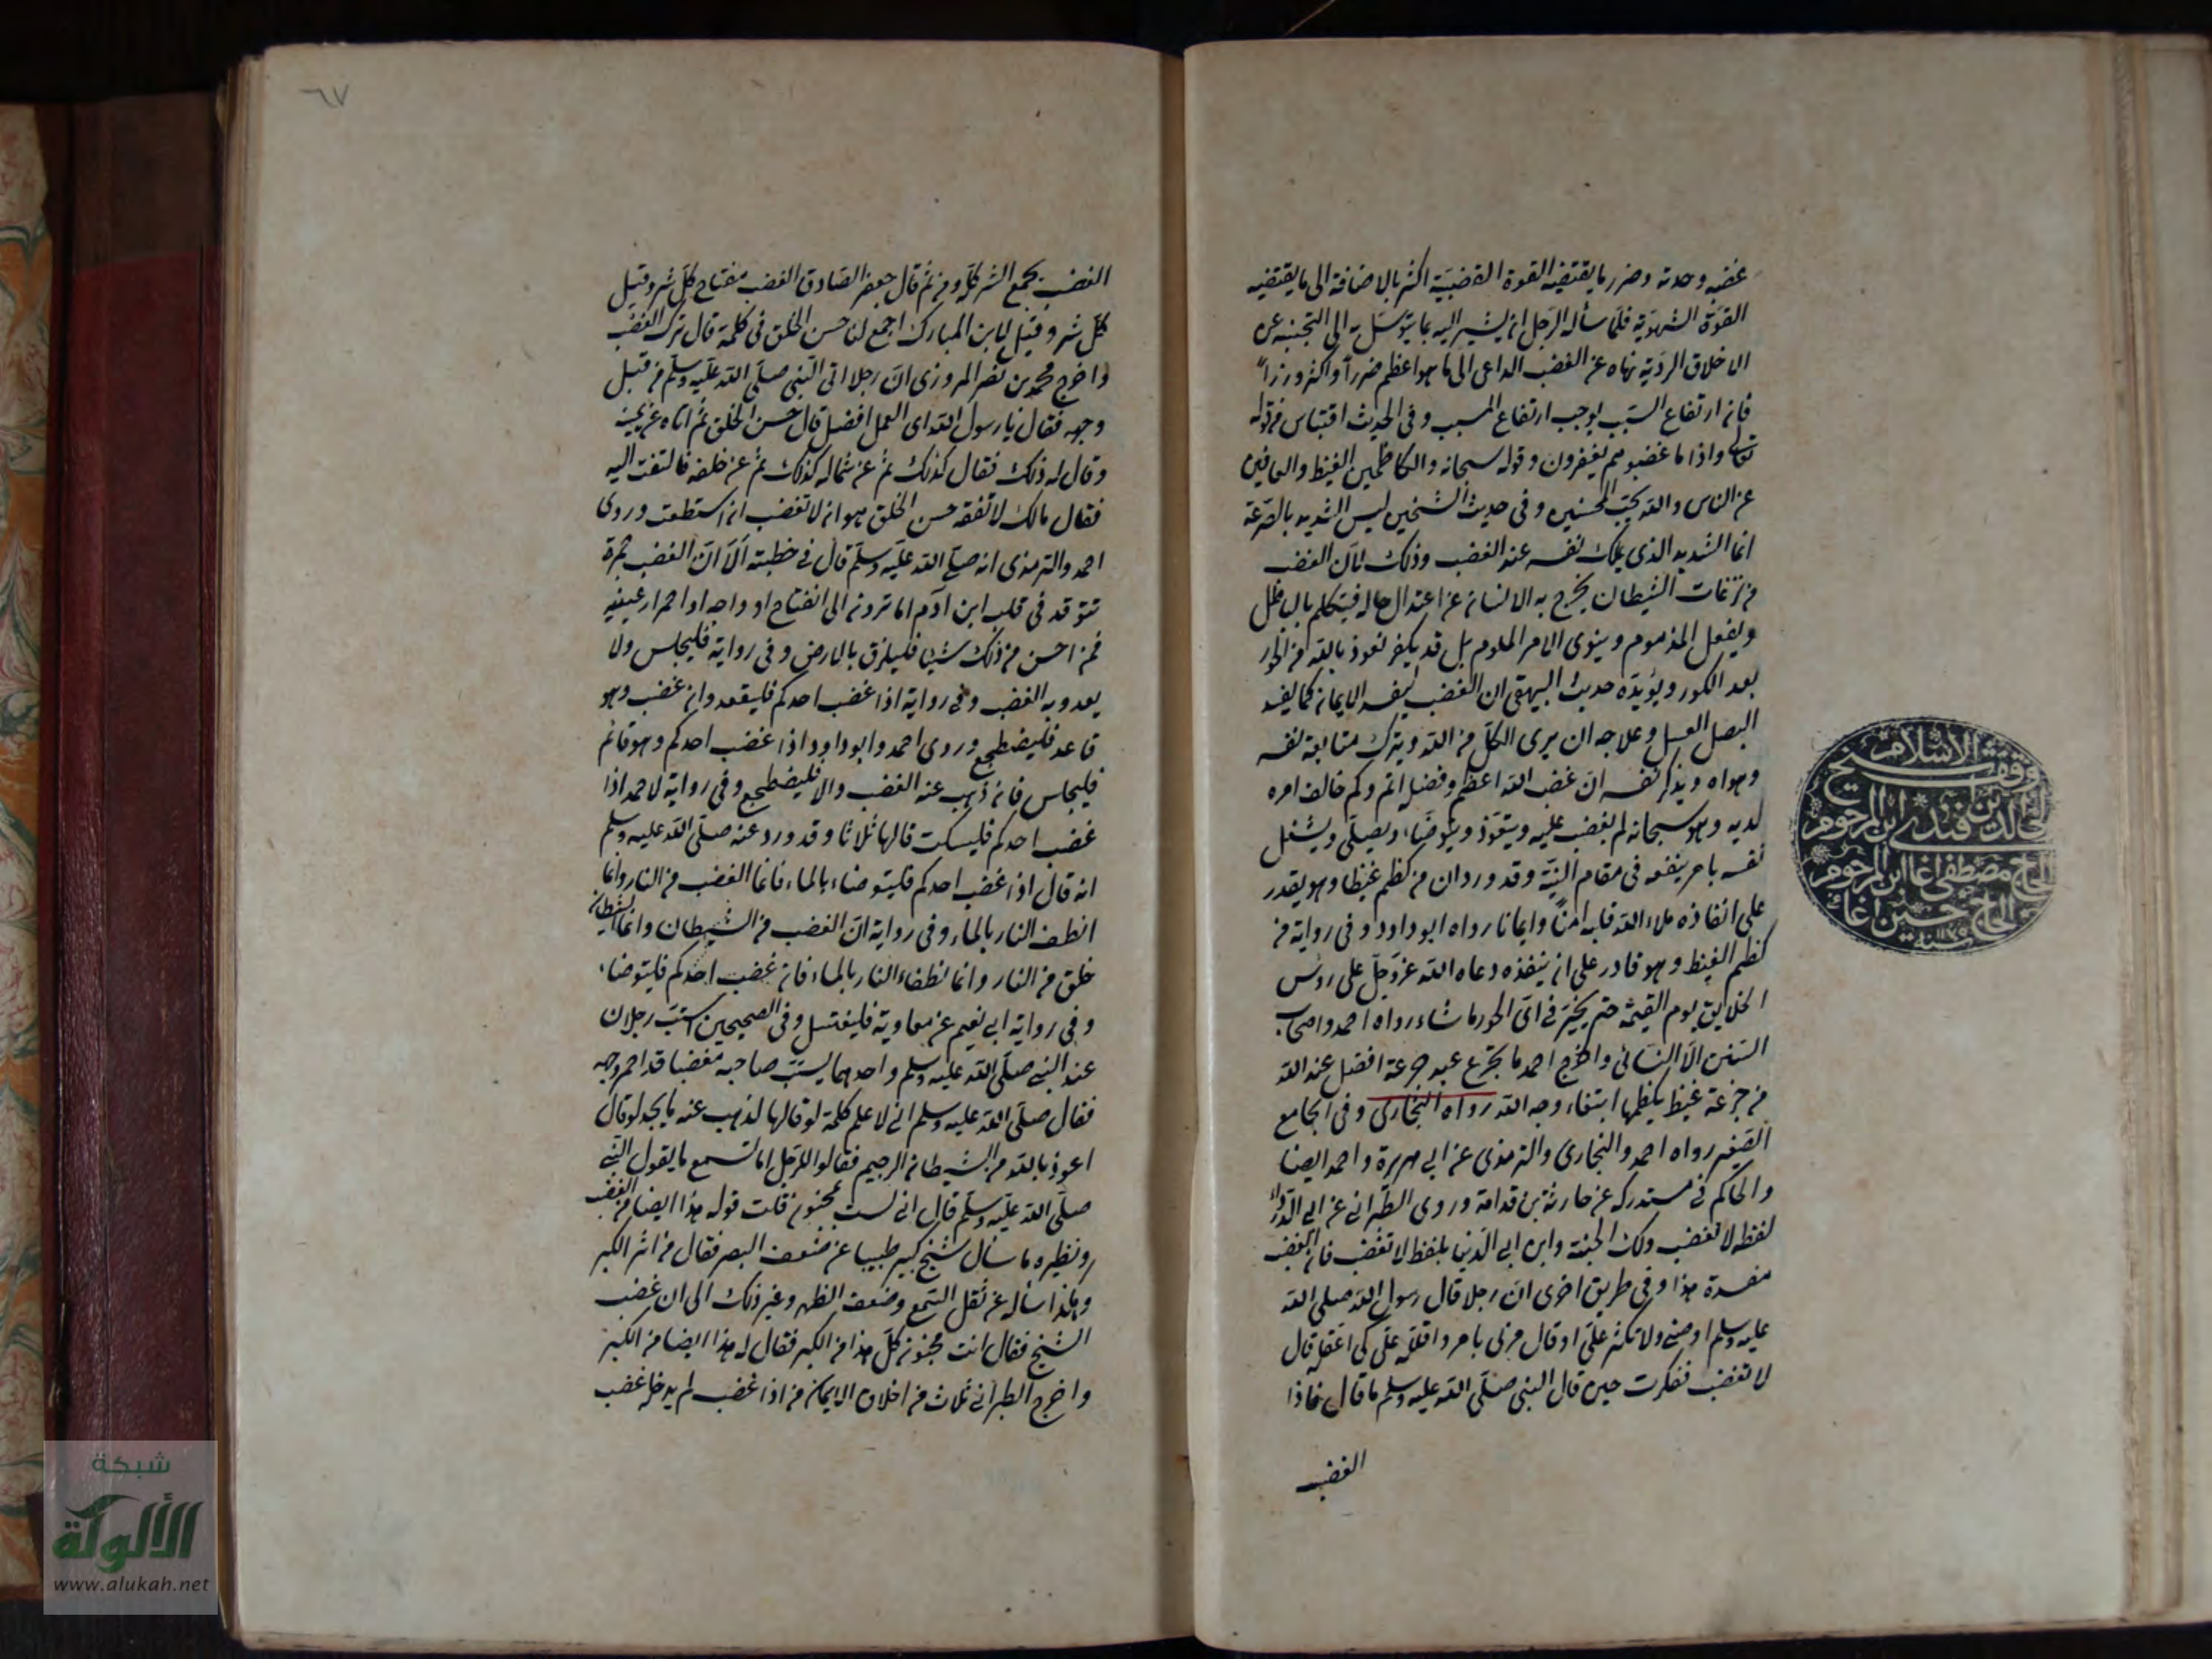 غضبه وحدته وضرر ما يقتضيه القوة الغضبية اكثر بالاضافة الى ما يقتضيه
القوة الشهوية فلما سأله الرجل ان يشير اليه بما يتوسل به الى التجنب عن
الاخلاق الردية نهاه عن الغضب الداعى الى ما هو اعظم ضررا واكثر وزرا
فان ارتفاع السبب يوجب ارتفاع المسبب وفى الحديث اقتباس من قوله
تعالى واذا ما غضبوا هم يغفرون وقوله سبحانه والكاظمين الغيظ والعافين
عن الناس والله يحب المحسنين وفى حديث الشيخين ليس الشديد بالصرعة
انما الشديد الذى يملك نفسه عند الغضب وذلك لأن الغضب
من نزغات الشيطان يخرج به الانسان عن اعتدال حاله فيتكلم بالباطل
ويفعل المذموم وينوى الامر الملوم بل قد يكفر نعوذ بالله من الحور
بعد الكور ويؤيده حديث البيهقى ان الغضب ليفسد الايمان كما يفسد
البصل العسل وعلاجه ان يرى الكل من الله ويترك متابعة نفسه
وهواه ويذكر نفسه ان غضب الله اعظم وفضله اتم وكم خالف امره
لديه وهو سبحانه لم يغضب عليه ويتعوذ ويتوضأ ويصلى ويشغل
نفسه بامر ينفعه فى مقام النية وقد ورد ان من كظم غيظا وهو يقدر
على انفاذه ملاء الله قلبه امنا وايمانا رواه ابو داود وفى رواية من
كظم الغيظ وهو قادر على ان ينفذه دعاه الله عز وجل على رؤس
الخلايق يوم القيمة حتى يخير فى اى الحور ما شاء رواه احمد واصحاب
السنن الا النسائى واخرج احمد ما تجرع عبد جرعة افضل عند الله
من جرعة غيظ يكظمها ابتغاء وجه الله رواه البخارى وفى الجامع
الصغير رواه احمد والبخارى والترمذى عن ابى هريرة واحمد ايضا
والحاكم فى مستدركه عن حارثة بن قدامة وروى الطبرانى عن ابى الدرداء
لفظه لا تغضب ولك الجنة وابن ابى الدنيا بلفظ لا تغضب فان الغضب
مفسدة هذا وفى طريق اخرى ان رجلا قال رسول الله صلى الله
عليه وسلم اوصنى ولا تكثر على او قال مرنى بامر واقلله على كى اعقله قال
لا تغضب ففكرت حين قال النبى صلى الله عليه وسلم ما قال فاذا
الغضب
وقف شيخ الاسلام
خالد افندى بن المرحوم
الحاج مصطفى اغا ابن المرحوم
الحاج حسين اغا
سنة
٦٧
الغضب يجمع الشر كله ومن ثم قال جعفر الصادق الغضب مفتاح كل شر وقيل
كل شر وقيل لابن المبارك اجمع لنا حسن الخلق فى كلمة قال ترك الغضب
واخرج محمد بن نصر المروزى ان رجلا اتى النبى صلى الله عليه وسلم من قبل
وجهه فقال يا رسول الله اى العمل افضل قال حسن الخلق ثم اتاه عن يمينه
وقال له ذلك فقال كذلك ثم عن شماله كذلك ثم عن خلفه فالتفت اليه
فقال مالك لا تفقه حسن الخلق هو ان لا تغضب ان استطعت وروى
احمد والترمذى انه صلى الله عليه وسلم قال فى خطبته الا ان الغضب جمرة
تتوقد فى قلب ابن آدم اما ترون الى انفتاح اوداجه او احمرار عينيه
فمن احس من ذلك شيئا فليلزق بالارض وفى رواية فليجلس ولا
يعدو به الغضب وفى رواية اذا غضب احدكم فليقعد وان غضب وهو
قاعد فليضطجع وروى احمد وابو داود اذا غضب احدكم وهو قائم
فليجلس فان ذهب عنه الغضب والا فليضطجع وفى رواية لاحمد اذا
غضب احدكم فليسكت قالها ثلاثا وقد ورد عنه صلى الله عليه وسلم
انه قال اذا غضب احدكم فليتوضاء بالماء فانما الغضب من النار وانما
انطف النار بالماء وفى رواية ان الغضب من الشيطان وانما الشيطان
خلق من النار وانما تطفاء النار بالماء فان غضب احدكم فليتوضاء
وفى رواية ابى نعيم عن معاوية فليغتسل وفى الصحيحين استب رجلان
عند النبى صلى الله عليه وسلم واحدهما يسب صاحبه مغضبا قد احمر وجهه
فقال صلى الله عليه وسلم انى لا علم كلمة لو قالها لذهب عنه ما يجد لو قال
اعوذ بالله من الشيطان الرجيم فقالوا للرجل اما تسمع ما يقول النبى
صلى الله عليه وسلم قال انى لست بمجنون قلت قوله هذا ايضا من الغضب
ونظيره ما سأل شيخ كبير طبيبا عن ضعف البصر فقال من اثر الكبر
وهكذا سأله عن ثقل السمع وضعف الظهر وغير ذلك الى ان غضب
الشيخ فقال انت مجنون كل هذا من الكبر فقال له هذا ايضا من الكبر
واخرج الطبرانى ثلاث من اخلاق الايمان من اذا غضب لم يدخله غضب
شبكة
الألوكة
www.alukah.net